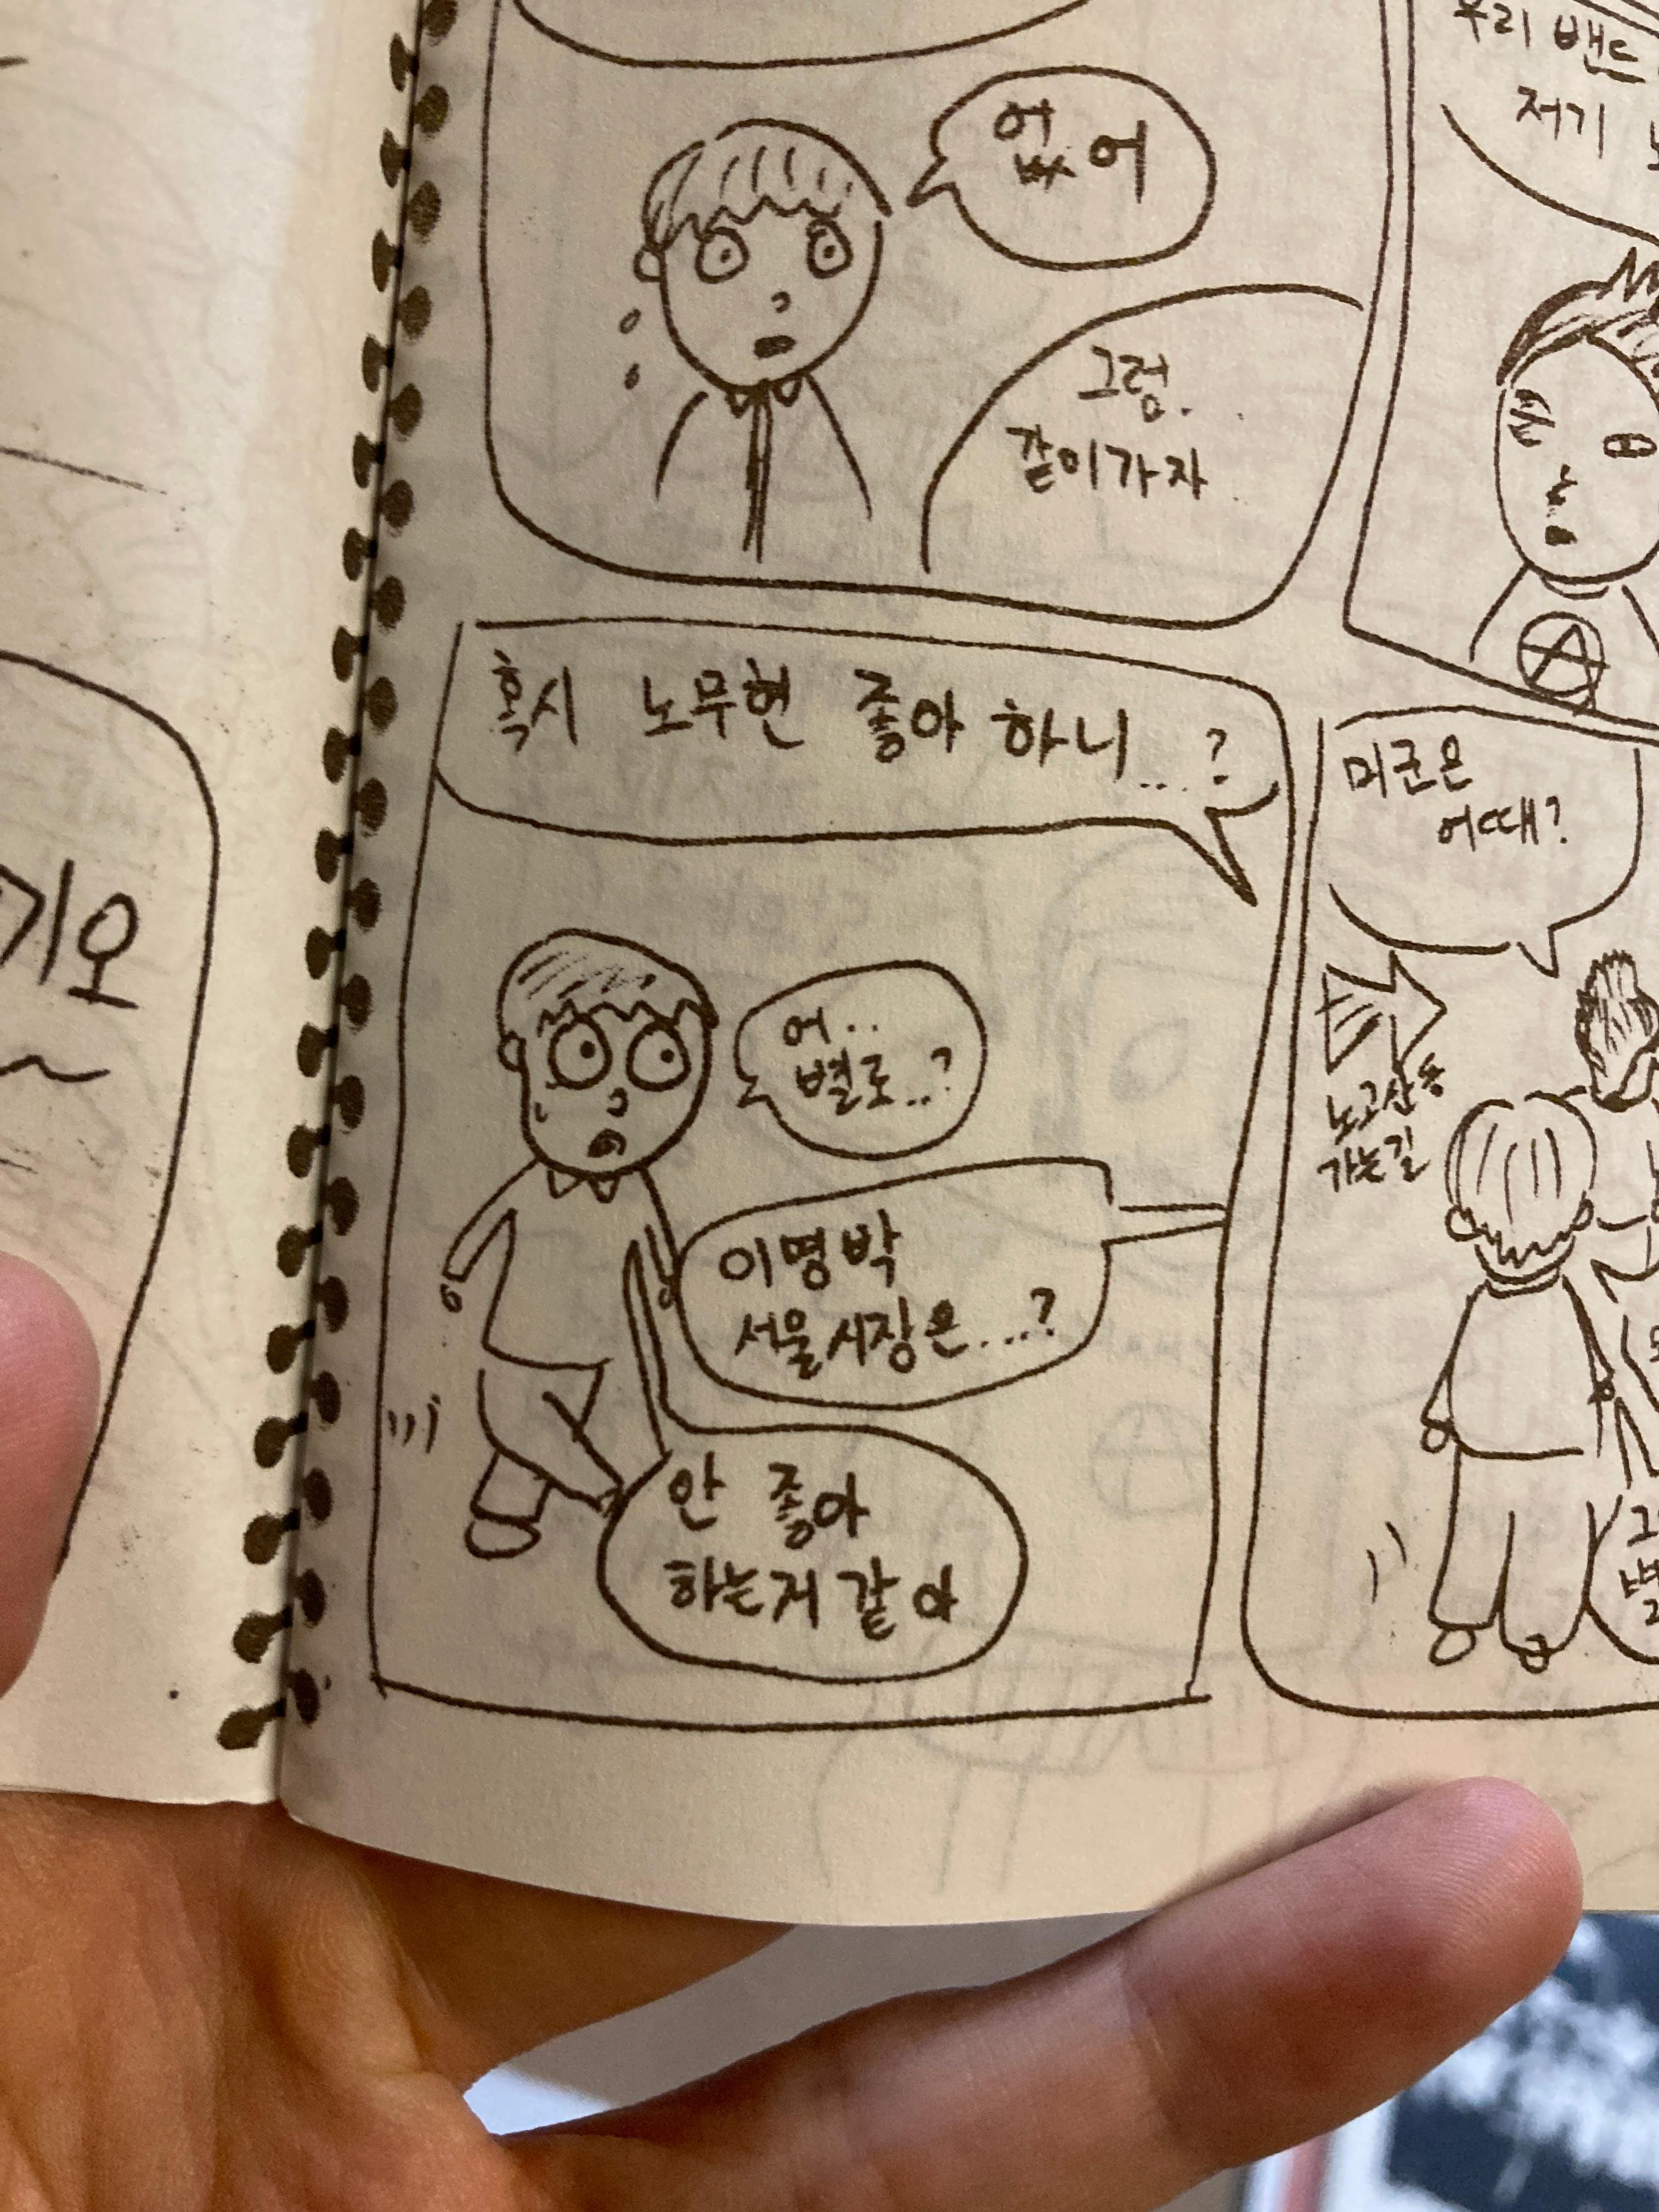 기오
없어
그럼.
같이가자
우리 밴드
저기
혹시 노무현 좋아하니...?
어..
별로..?
이명박
서울시장은....?
안 좋아
하는거 같아
미군은
어때?
노고산동
가는길